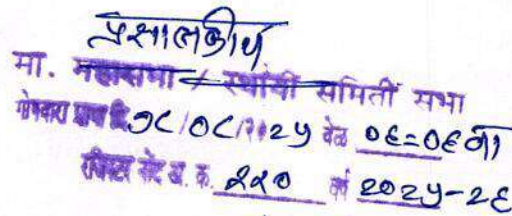 प्रशासकीय
मा. महासभा / स्थायी समिती सभा
गोषवारा प्राप्त दि. १८/०८/२०२५ वेळ ०६=०६ वा
रजिस्टर नोंद अ. क्र. २२० वर्ष २०२५-२६